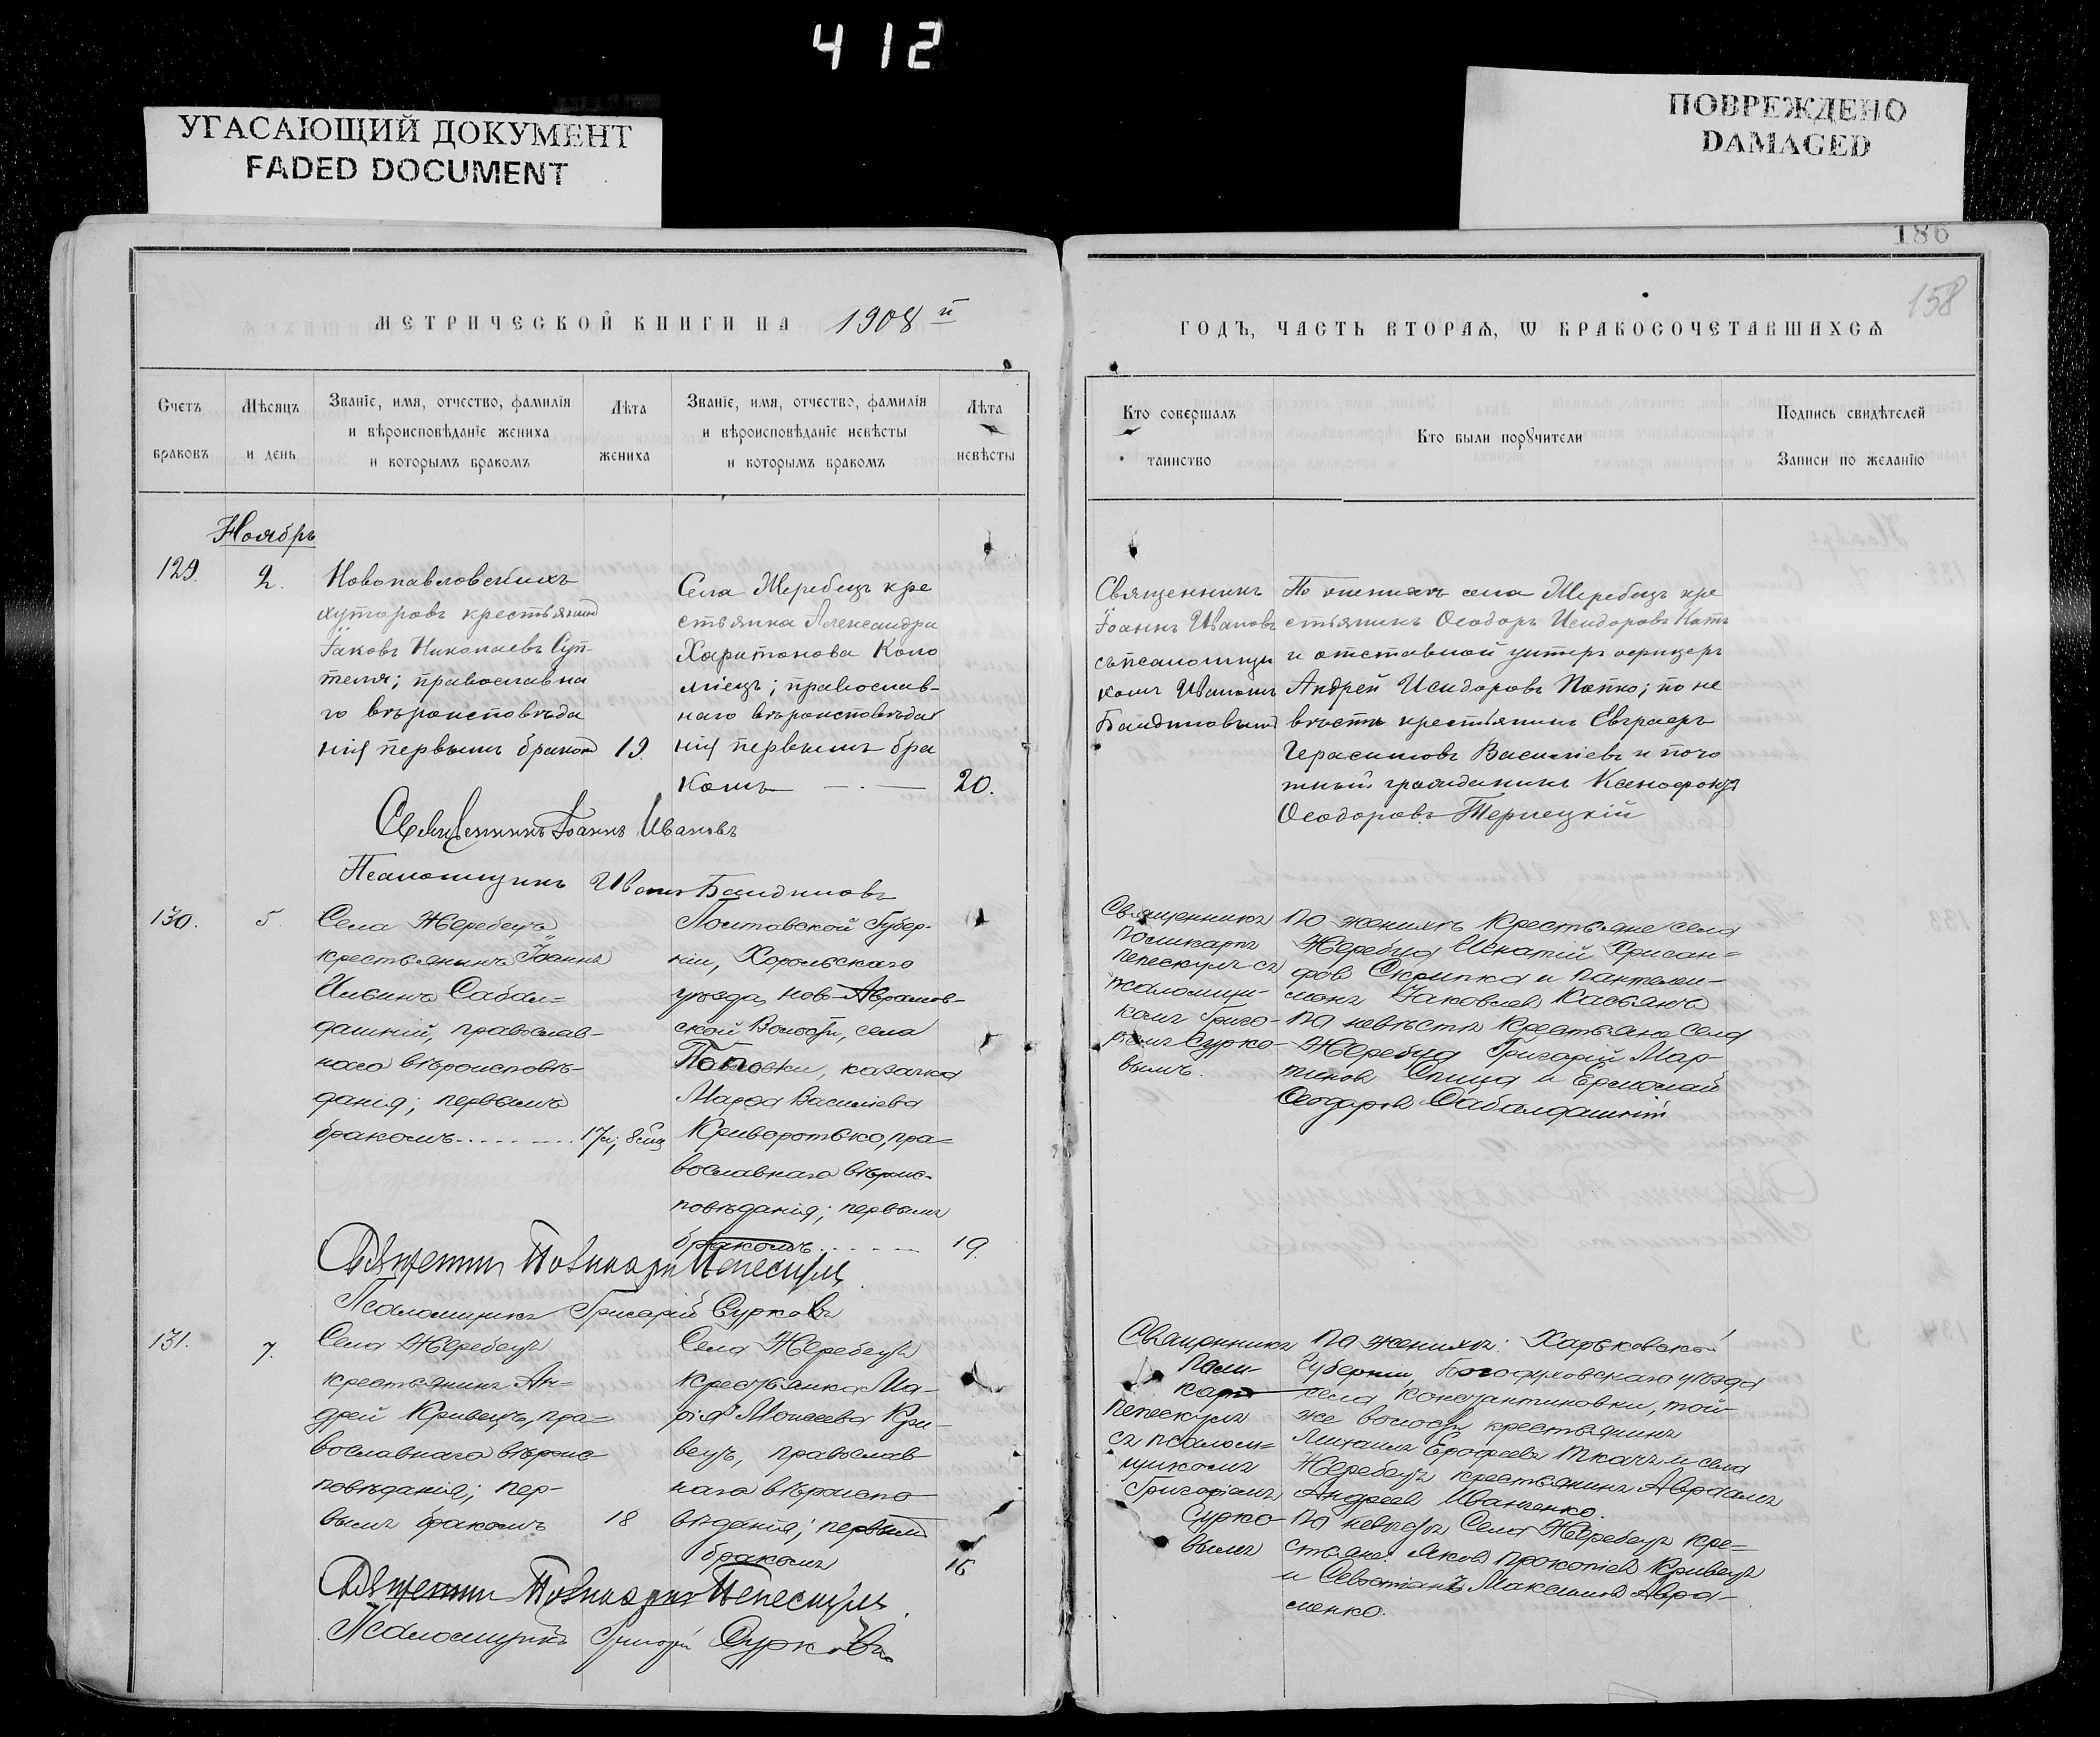 412
УГАСАЮЩИЙ ДОКУМЕНТ
FADED DOCUMENT
ПОВРЕЖДЕНО
DAMAGED
186
158
МЕТРИЧЕСКОЙ КНИГИ НА 1908 й
ГОДЪ, ЧАСТЬ ВТОРАѦ, Ѡ БРАКОСОЧЕТАВШИХСѦ
Счетъ браковъ
Мѣсяцъ и день
Званіе, имя, отчество, фамилія
и вѣроисповѣданіе жениха
и которымъ бракомъ
Лѣта жениха
Званіе, имя, отчество, фамилія
и вѣроисповѣданіе невѣсты
и которымъ бракомъ
Лѣта невѣсты
Кто совершалъ таинство
Кто были порꙋчители
Подпись свидѣтелей
Записи по желанію
Ноябрь
129.
2.
Новопавловскихъ
хуторовъ крестьянинъ
Іаковъ Николаевъ Суп-
теля; православна
го вѣроисповѣда
нія первымъ бракомъ
19.
Села Жеребецъ кре
стьянка Александра
Харитонова Коло
міецъ; православ-
наго вѣроисповѣда
нія первымъ бра
комъ
20.
Священникъ
Іоаннъ Ивановъ
съ псаломщи
комъ Иваномъ
Баидиновымъ
По женихѣ села Жеребецъ кре
стьянинъ Ѳеодоръ Исидоровъ Котъ
и отставной унтеръ офицеръ
Андрей Исидоровъ Попко; по не
вѣстѣ крестьянинъ Евграфъ
Герасимовъ Василіевъ и поче
тный гражданинъ Ксенофонтъ
Ѳеодоровъ Тернецкій
Священникъ Іоаннъ Ивановъ
Псаломщикъ Иванъ Баидиновъ
130.
5.
Села Жеребецъ
крестьянинъ Іоаннъ
Сабал=
дашній, православ-
наго вѣроисповѣ-
данія; первымъ
бракомъ
17 л; 8 мц
Полтавской Губер-
ніи, Хорольскаго
уѣзда, Ново-Аврамов-
ской Волости, села
Поповки, казачка
Марѳа Василіева
Криворотько, пра=
вославнаго вѣроис-
повѣданія; первымъ
бракомъ
19.
Священникъ
Поликарпъ
Пепескулъ съ
псаломщи-
комъ Григо-
ріемъ Сурко-
вымъ.
По женихѣ крестьяне села
Жеребца Игнатій Хрисан=
фов Скрипка и Пантелеи-
монъ Яковлев Касьянъ
По невѣстѣ крестьяне села
Жеребца Григорій Мар-
тинов Спица и Ермолай
Ѳеодоров Сабалдашній
Священникъ Поликарпъ Пепескулъ
Псаломщикъ Григорій Сурковъ
131.
7.
Села Жеребецъ
крестьянинъ Ан=
дрей Кривецъ, пра=
вославнаго вѣроис=
повѣданія; пер-
вымъ бракомъ
18
Села Жеребецъ
крестьянка Ма-
рія Моисеева Кри-
вецъ, православ-
наго вѣроиспо-
вѣданія; первымъ
бракомъ
16
Священникъ
Поли-
карпъ
Пепескулъ
съ псалом=
щикомъ
Григоріемъ
Сурко-
вымъ
По женихѣ: Харьковской
Губерніи, Богодуховскаго уѣзда
села Константиновки, той-
же волости крестьянинъ
Михаилъ Ерофеевъ Ткачъ и села
Жеребецъ крестьянинъ Авраамъ
Андреев Иванченко.
По невѣстѣ Села Жеребецъ кре=
стьяне: Яков Прокопіев Кривецъ
и Севастіанъ Максимов Авра-
менко.
Священникъ Поликарпъ Пепескулъ
Псаломщикъ Григорій Сурковъ